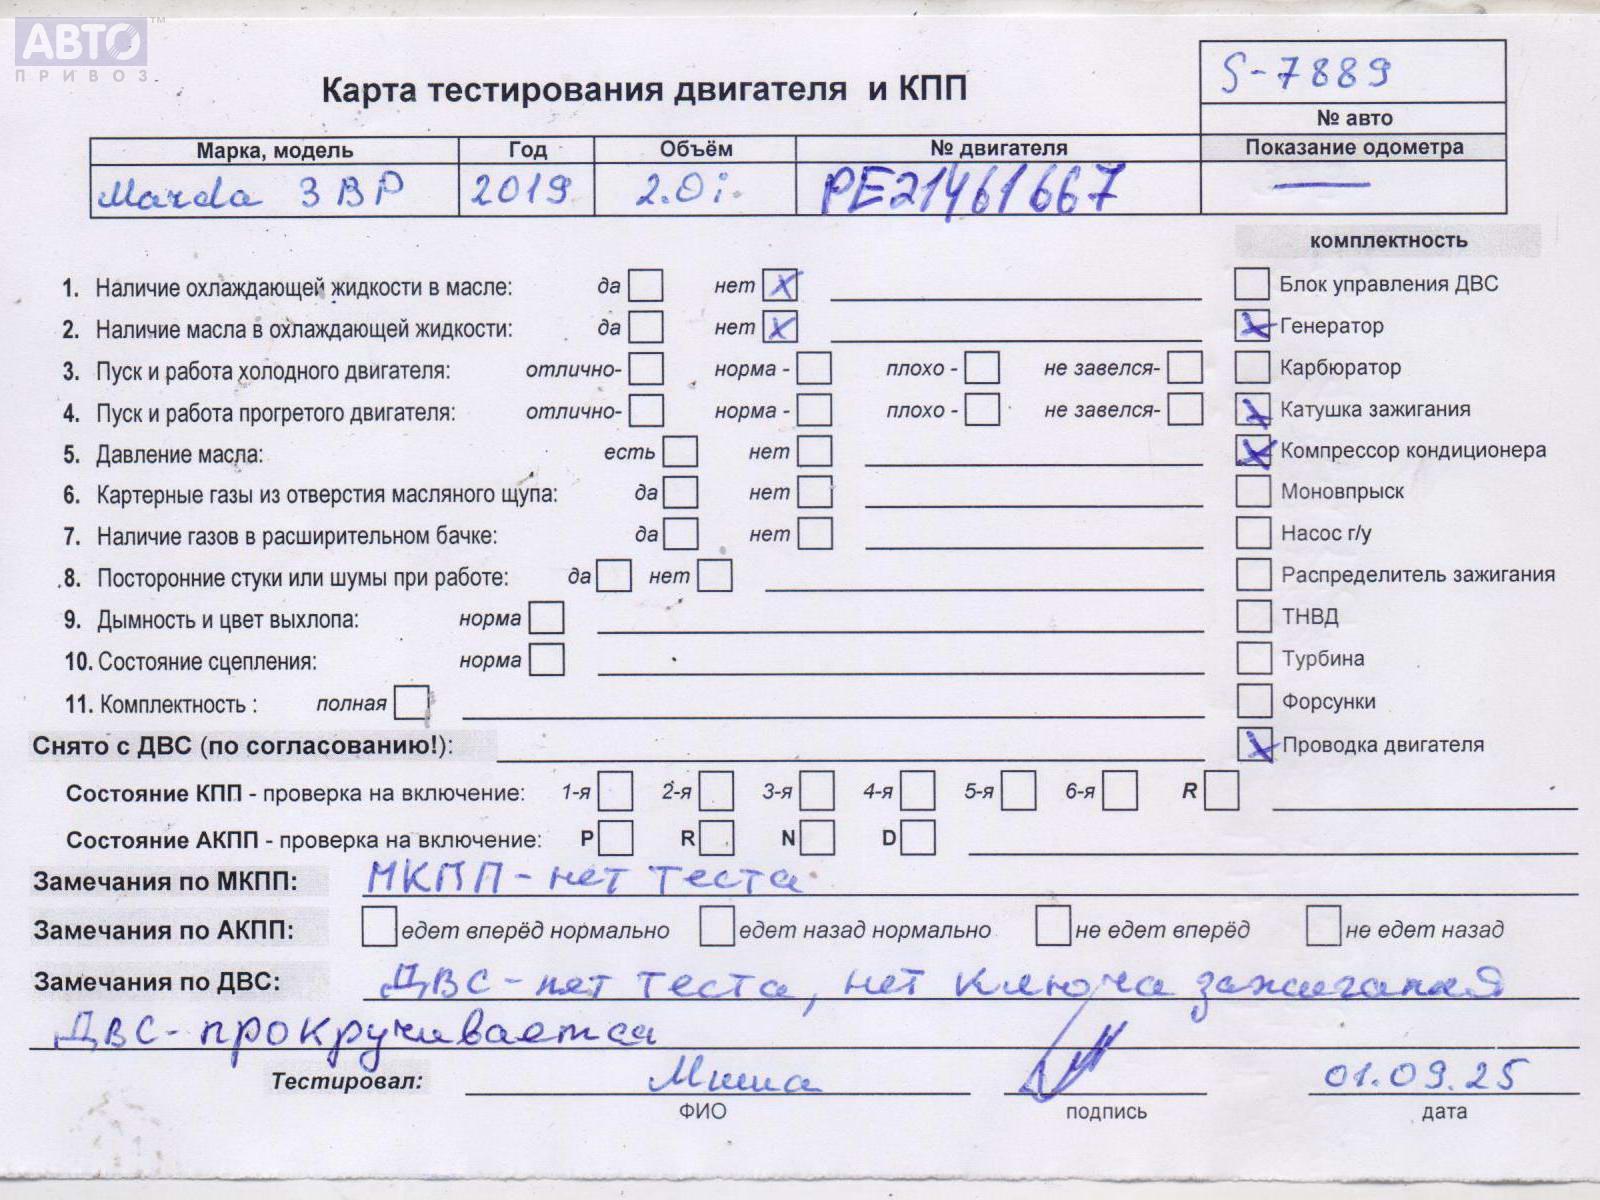 АВТО™
ПРИВОЗ
S-7889
Карта тестирования двигателя и КПП
№ авто
Марка, модель Год Объём № двигателя Показание одометра
Mazda 3 BP 2019 2.0i. PE21461667 —
комплектность
1. Наличие охлаждающей жидкости в масле: да нет X Блок управления ДВС
2. Наличие масла в охлаждающей жидкости: да нет X X Генератор
3. Пуск и работа холодного двигателя: отлично- норма - плохо - не завелся- Карбюратор
4. Пуск и работа прогретого двигателя: отлично- норма - плохо - не завелся- X Катушка зажигания
5. Давление масла: есть нет X Компрессор кондиционера
6. Картерные газы из отверстия масляного щупа: да нет Моновпрыск
7. Наличие газов в расширительном бачке: да нет Насос г/у
8. Посторонние стуки или шумы при работе: да нет Распределитель зажигания
9. Дымность и цвет выхлопа: норма ТНВД
10. Состояние сцепления: норма Турбина
11. Комплектность : полная Форсунки
Снято с ДВС (по согласованию!): X Проводка двигателя
Состояние КПП - проверка на включение: 1-я 2-я 3-я 4-я 5-я 6-я R
Состояние АКПП - проверка на включение: P R N D
Замечания по МКПП: МКПП - нет теста
Замечания по АКПП: едет вперёд нормально едет назад нормально не едет вперёд не едет назад
Замечания по ДВС: ДВС - нет теста, нет ключа зажигания
ДВС - прокручивается
Тестировал: Миша 01.09.25
ФИО подпись дата